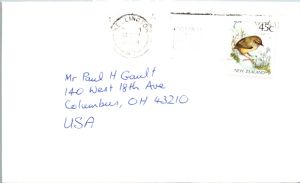 45c
NEW ZEALAND
Mr Paul H Gault
140 West 18th Ave
Columbus, OH 43210
USA